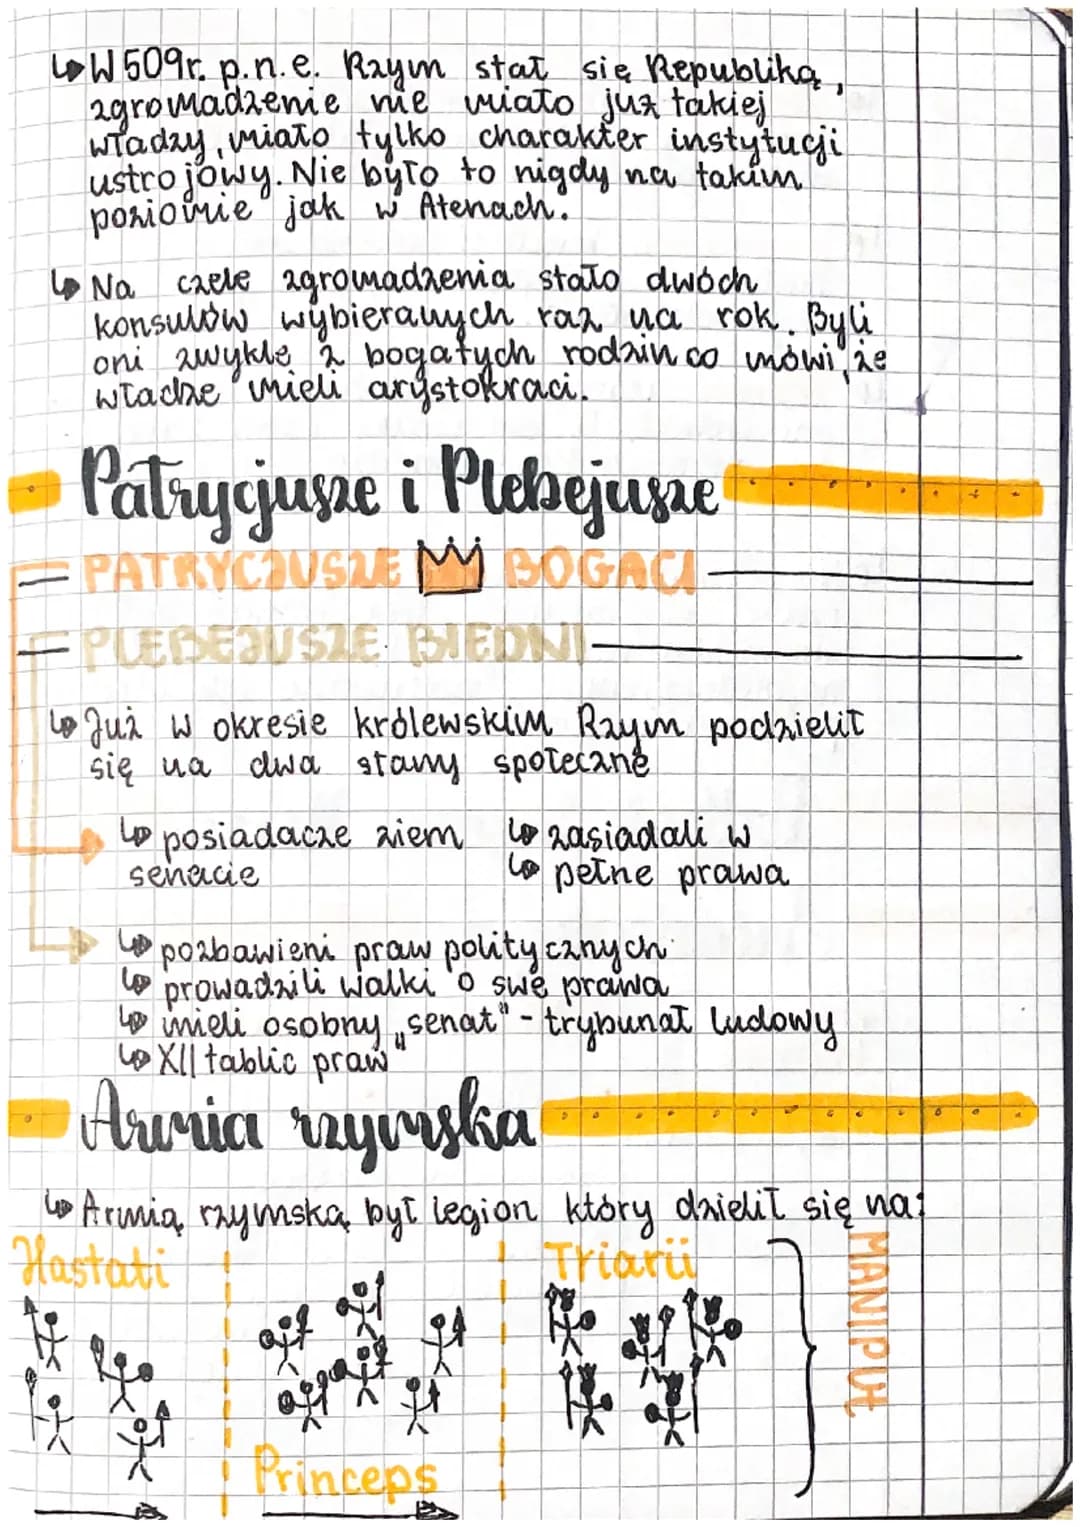 W 509r. p.n.e. Rzym stał się Republiką,
zgromadzenie nie miało już takiej
władzy, miało tylko charakter instytucji
ustrojowy. Nie było to nigdy na takim
poziomie jak w Atenach.
Na czele zgromadzenia stało dwóch
konsulów wybieranych raz na rok. Byli
oni zwykle z bogatych rodzin co mówi, że
władze mieli arystokraci.
Patrycjusze i Plebejusze
PATRYCJUSZE BOGACI
PLEBEJUSZE BIEDNI
Już w okresie królewskim Rzym podzielił
się na dwa stany społeczne
posiadacze ziem zasiadali w
senacie pełne prawa
pozbawieni praw politycznych
prowadzili walki o swe prawa
mieli osobny „senat" - trybunał ludowy
XII tablic praw"
Armia rzymska
Armią rzymską był legion który dzielił się na:
Hastati Triarii
MANIPUŁ
Princeps